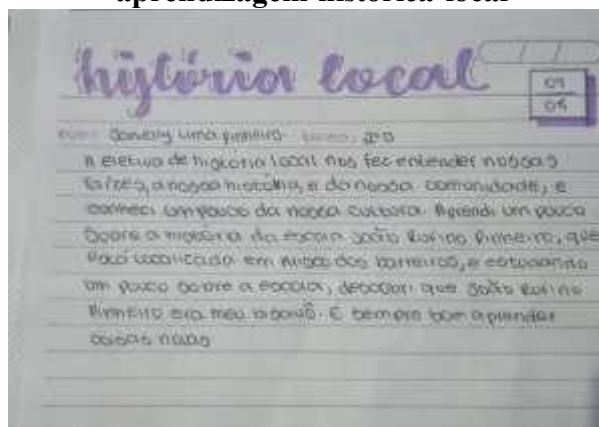 aprendizagem histórica local
história local
/ /
09
05
Lima Pinheiro
A eletiva de história local nos fez entender nossas
raízes, a nossa história, e da nossa comunidade, e
conheci um pouco da nossa cultura. Aprendi um pouco
sobre a história da escola João Rufino Pinheiro, que
localizada em dos barreiros, e estudando
um pouco sobre a escola, descobri que João Rufino
Pinheiro era meu bisavô. É sempre bom aprender
coisas